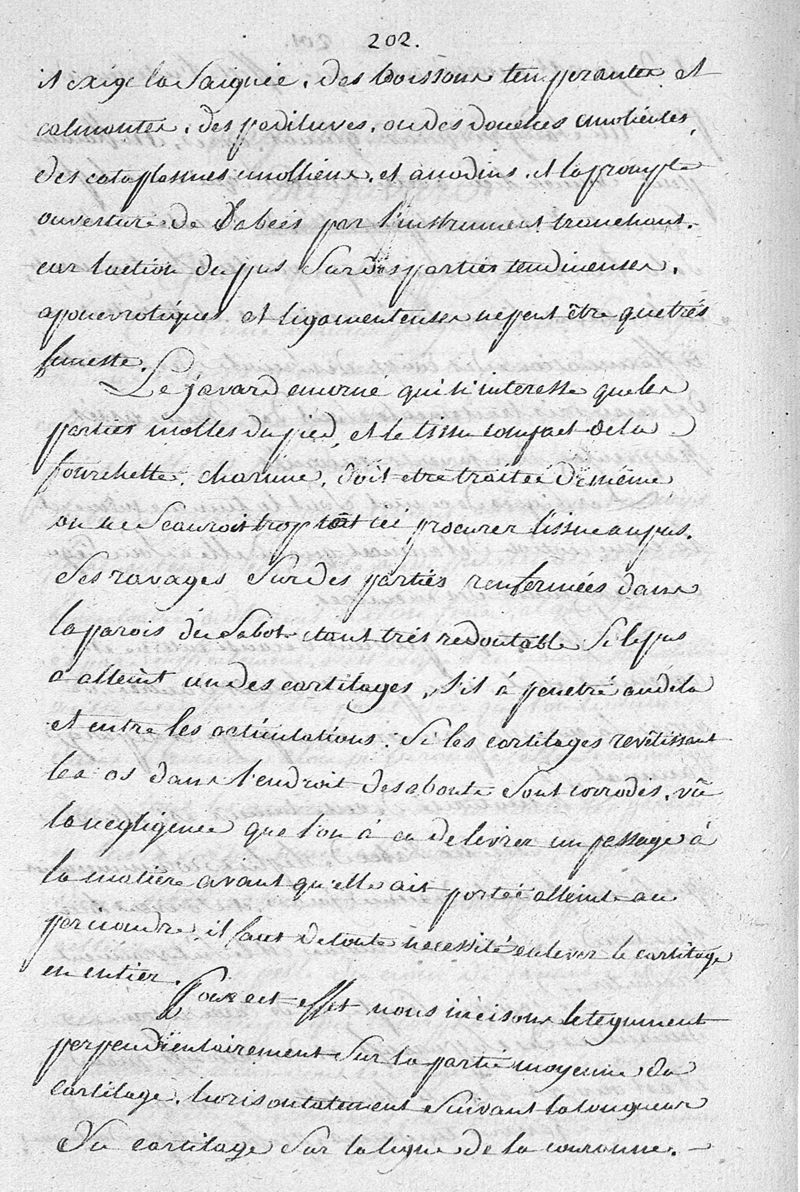 202.
il exige la saignée, des boissons temperantes et
calmantes, des pediluves, ou des douches emolientes,
des cataplasmes emolliens, et anodins, et la prompte
ouverture de l'abcés par l'instrument tranchant.
car l'action du pus sur des parties tendineuses,
aponevrotiques et ligamenteuses ne peut être que trés
funeste.
Le javard encorné qui n'interesse que les
parties molles du pied, et le tissu compact de la
fourchette, charnue, doit etre traitée de même
on ne scauroit trop tôt procurer l'issue au pus.
Ses ravages sur des parties renfermées dans
la parois du sabot etant trés redoutable si le pus
a atteint un des cartilages, s'il à penetré au dela
et entre les articulations; si les cartilages revêtissant
les os dans l'endroit des aboute sont corrodes, vû
la negligence que l'on à eu de livrer un passage à
la matière avant qu'elle ait portée atteinte au
pericondre, il faut de toute necessité enlever le cartilage
en entier.
Pour cet effet nous incisons le tegument
perpendiculairement sur la partie moyenne du
cartilage, horisontalement suivant la longueur
du cartilage sur la ligne de la couronne.